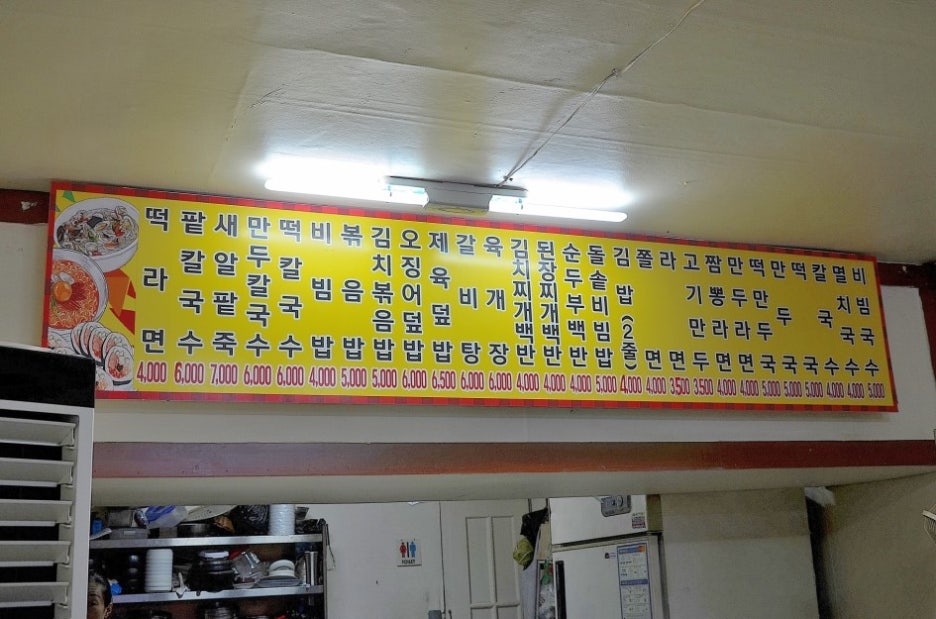 떡라면 4,000
팥칼국수 6,000
새알팥죽 7,000
만두칼국수 6,000
떡칼국수 6,000
비빔밥 4,000
볶음밥 5,000
김치볶음밥 5,000
오징어덮밥 6,000
제육덮밥 6,500
갈비탕 6,000
육개장 6,000
김치찌개백반 4,000
된장찌개백반 4,000
순두부백반 4,000
돌솥비빔밥 5,000
김밥(2줄) 4,000
쫄면 4,000
라면 3,500
고기만두 3,500
짬뽕라면 4,000
만두라면 4,000
떡만두국 5,000
만두국 5,000
떡국 5,000
칼국수 4,000
멸치국수 4,000
비빔국수 5,000
TOILET